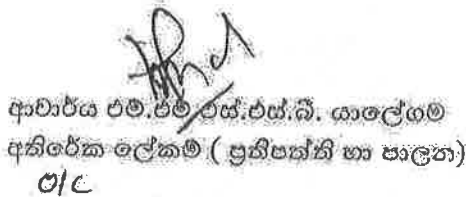 ආචාර්ය එම්.එම්.එස්.එස්.බී. යාලේගම
අතිරේක ලේකම් ( ප්‍රතිපත්ති හා පාලන)
O/C